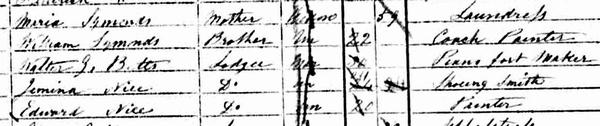 Maria Symonds Mother Widow 59 Laundress
William Symonds Brother Un 22 Coach Painter
Walter J. Lodger Piano fort Maker
Jemima Nice Do un Shoeing Smith
Edward Nice Do un 20 Painter